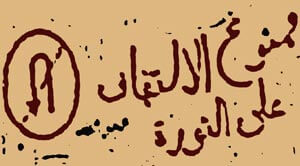 ممنوع الالتفاف
على الثورة